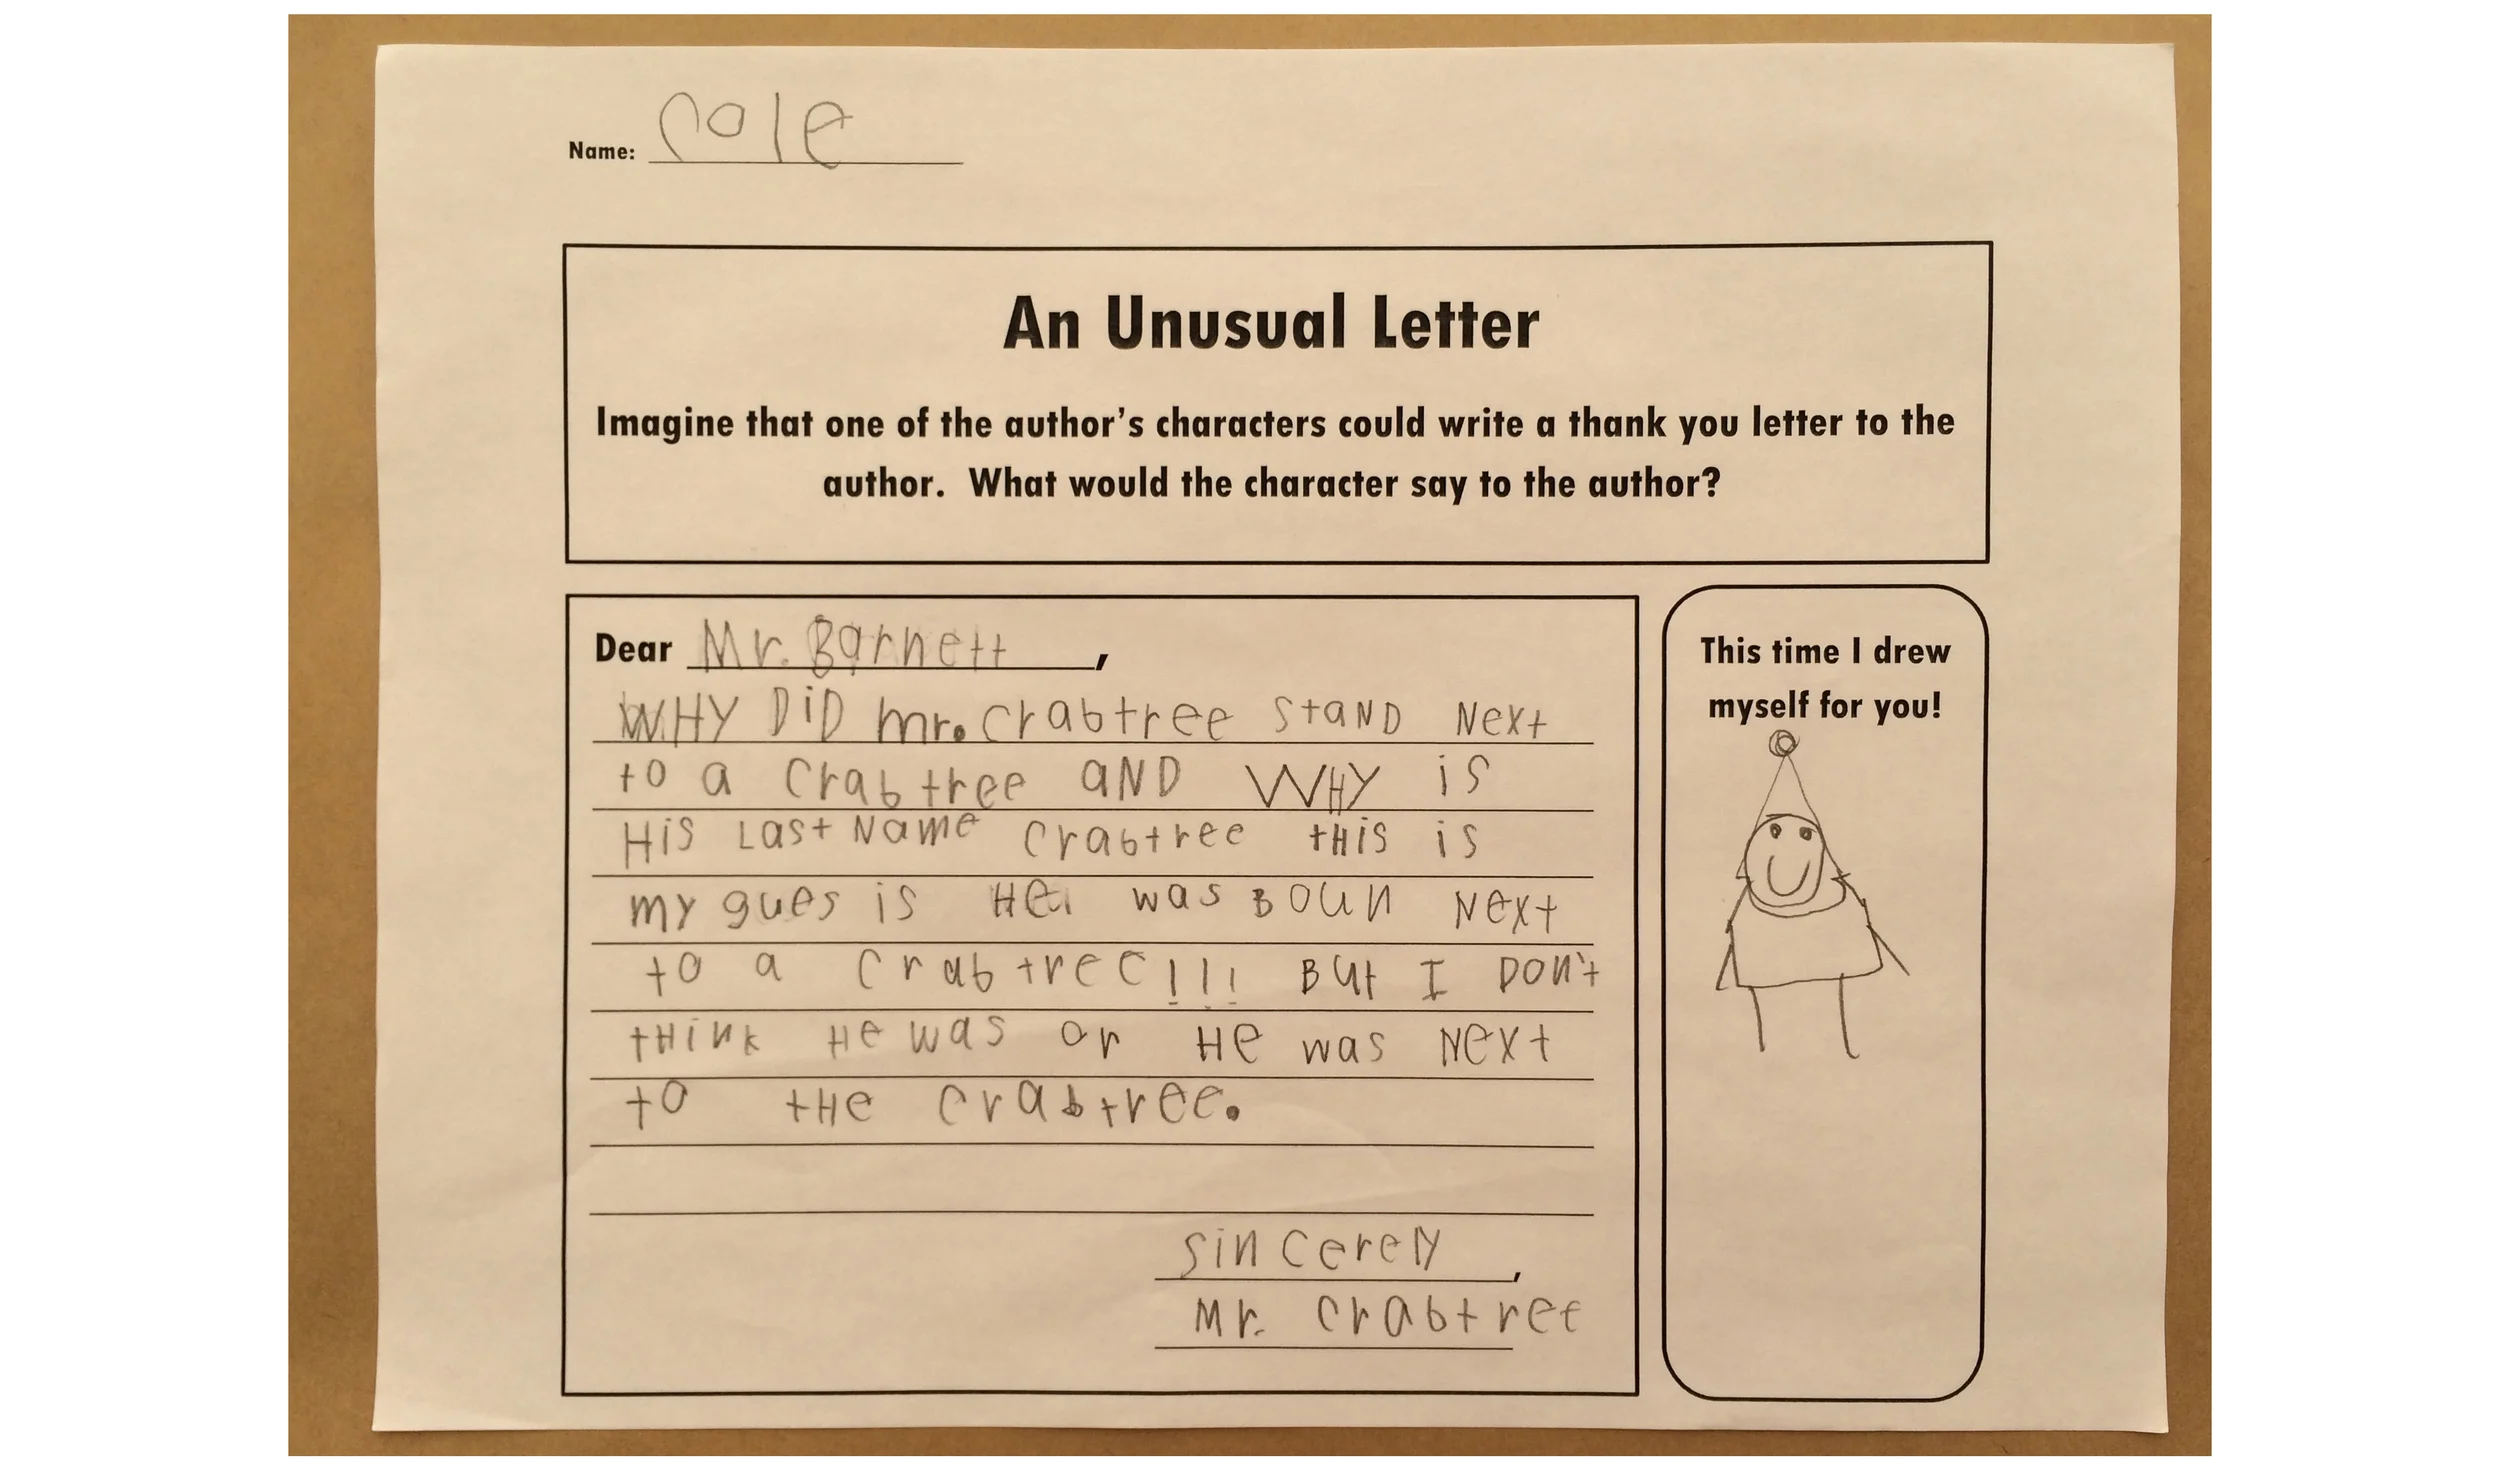 Name: Cole
An Unusual Letter
Imagine that one of the author's characters could write a thank you letter to the
author. What would the character say to the author?
Dear Mr. Barnett,
WHY DiD mr. Crabtree StaND Next
to a Crabtree aND WHY is
His Last Name Crabtree tHis is
my gues is He was BouN Next
to a Crabtree!!! But I DoN't
tHiNk He was or He was Next
to tHe Crabtree.
SiNcerely,
Mr. Crabtree
This time I drew
myself for you!